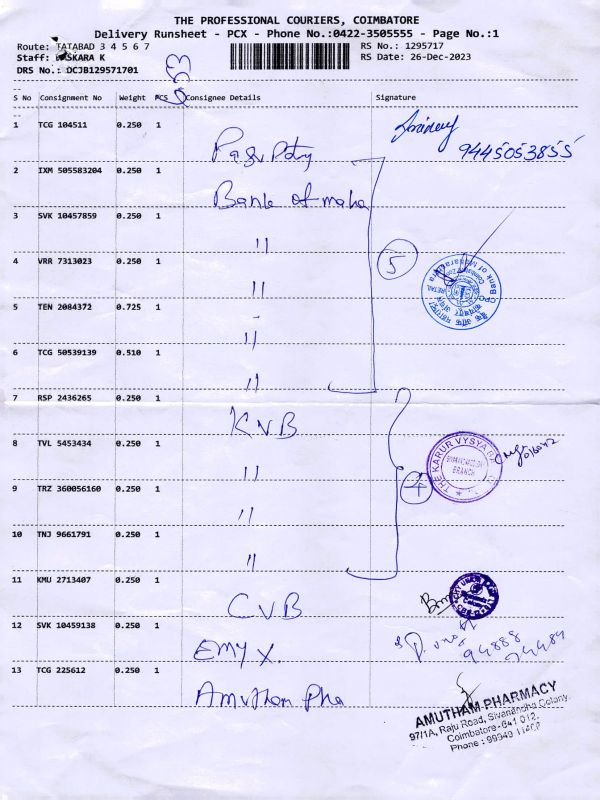 THE PROFESSIONAL COURIERS, COIMBATORE
Delivery Runsheet - PCX - Phone No.:0422-3505555 - Page No.:1
Route: TATABAD 3 4 5 6 7
RS No.: 1295717
Staff: BASKARA K
RS Date: 26-Dec-2023
DRS No.: DCJB129571701
S No Consignment No Weight PCS Consignee Details Signature
1 TCG 104511 0.250 1
9445053855
2 IXM 505583204 0.250 1 Bank of maha
3 SVK 10457859 0.250 1 "
4 VRR 7313023 0.250 1 "
5
Bank of Maharashtra
5 TEN 2084372 0.725 1 "
6 TCG 50539139 0.510 1 "
7 RSP 2436265 0.250 1 KVB
8 TVL 5453434 0.250 1 "
THE KARUR VYSYA
BRANCH
9 TRZ 360056160 0.250 1 "
4
10 TNJ 9661791 0.250 1 "
11 KMU 2713407 0.250 1 CVB
12 SVK 10459138 0.250 1 Emy X.
94888
13 TCG 225612 0.250 1 Amutham Pha
AMUTHAM PHARMACY
97/1A, Raju Road, Sivanandha Colony,
Coimbatore-641 012.
Phone : 99949